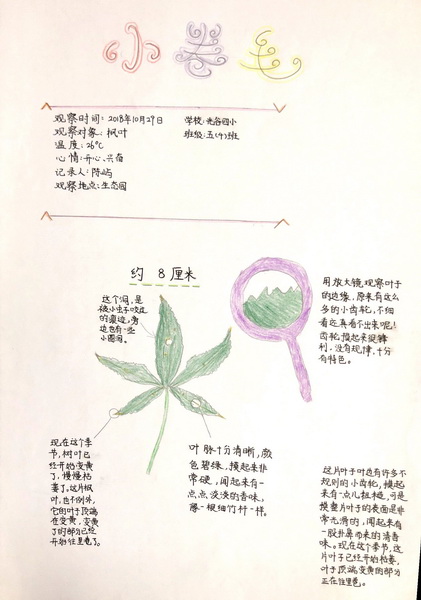 小卷毛
观察时间：2018年10月29日 学校：光谷四小
观察对象：枫叶 班级：五（4）班
温度：26℃
心情：开心、兴奋
记录人：陈屿
观察地点：生态园
约 8 厘米
这个洞，是
被小虫子咬过
的痕迹，旁
边也有一些
小圆洞。
用放大镜观察叶子
的边缘，原来有这么
多的小齿轮，不细
看还真看不出来呢！
齿轮摸起来挺锋
利，没有规律，十分
有特色。
现在这个季
节，树叶已
经开始变黄
了，慢慢枯
萎了。这片枫
叶，也不例外，
它的叶子顶端
在变黄，变黄
了的部分已经
开始往里卷了。
叶脉十分清晰，颜
色碧绿，摸起来非
常硬，闻起来有一
点点淡淡的香味，
像一根细竹杆一样。
这片叶子叶边有许多不
规则的小齿轮，摸起
来有一点儿粗糙，可是
摸整片叶子的表面是非
常光滑的，闻起来有
一股扑鼻而来的清香
味。现在这个季节，这
片叶子已经开始枯萎，
叶子顶端变黄的部分
正在往里卷。